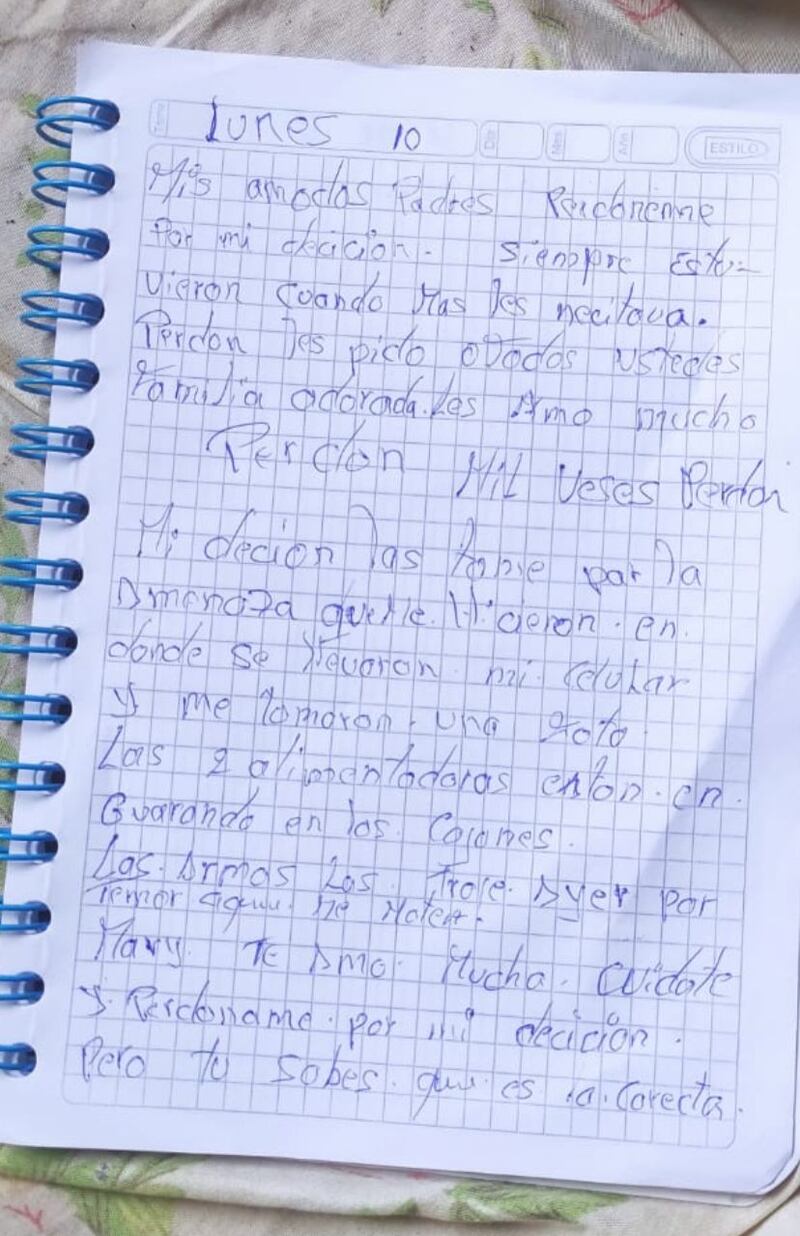 Tema
lunes 10
Día Mes Año ESTILO
Mis amados Padres Perdoneme
Por mi decicion. Sienppre Estu-
vieron cuando Mas les necitava.
Perdon les pido atodos ustedes
Familia adorada. Les Amo mucho
Perdon Mil Veses Perdon
Mi decion las tome por la
Amenaza que Me Hicieron. en.
donde se llevaron. mi. Celular
y me tomaron. una Foto.
Las 2 alimentadoras estan. en.
Guarando en los. Cajones.
Las. Armas Las. Traje. Ayer por
Temor aque. me Maten.
Mary. Te Amo. Mucha. Cuidate
y. Perdoname. por mi decicion.
Pero tu sabes. que. es la. Corecta.